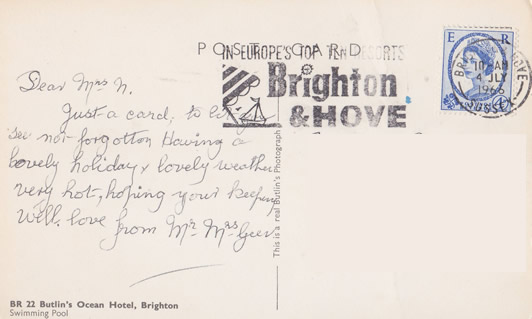 POST CARD
IN EUROPE'S TOP TEN RESORTS
Brighton
& HOVE
E R
10-AM
4 JLY
1966
Dear Mrs N.
Just a card, to let you
see not forgotten Having a
lovely holiday & lovely weather
very hot, hoping your keeping
well. love from Mr Mrs Geer
This is a real Butlin's Photograph
BR 22 Butlin's Ocean Hotel, Brighton
Swimming Pool